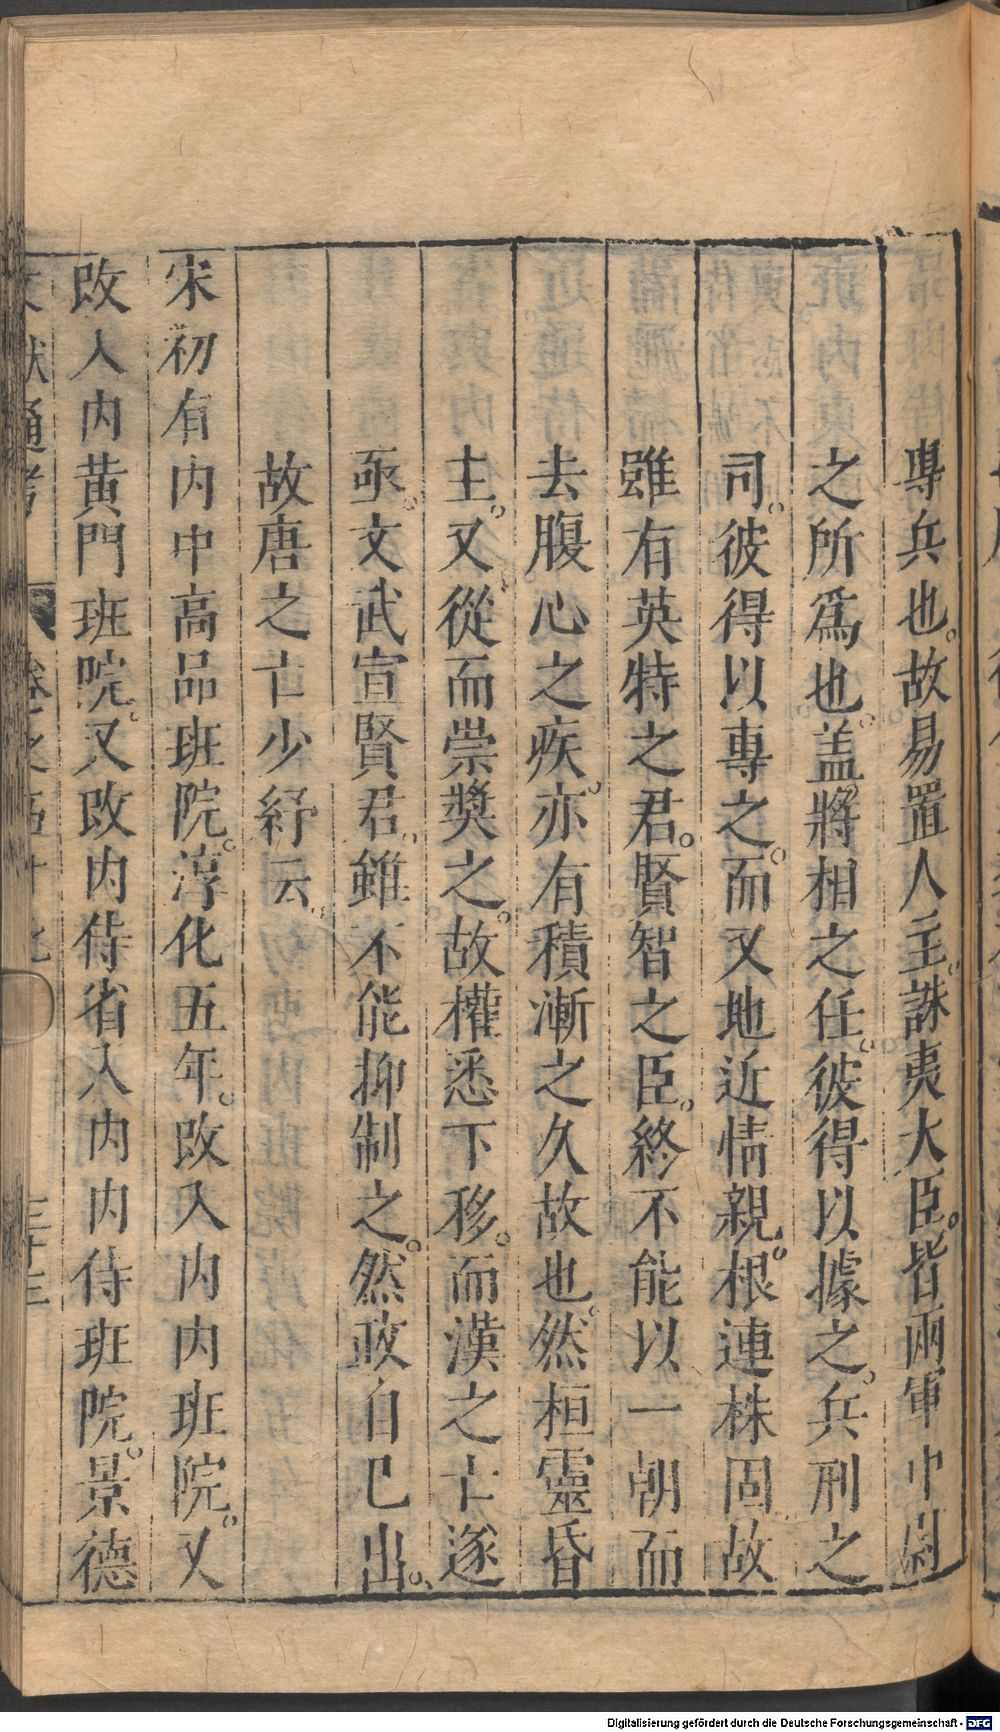 專兵也。故易置人主。誅夷大臣。皆兩軍中尉
之所爲也。盖將相之任。彼得以據之。兵刑之
司。彼得以專之。而又地近情親。根連株固故
雖有英特之君。賢智之臣。終不能以一朝而
去腹心之疾。亦有積漸之久故也。然桓靈昏
主。又從而崇獎之。故權悉下移。而漢之亡遂
亟。文武宣賢君。雖不能抑制之。然政自已出。
故唐之亡少紓云。
宋初有内中高品班院。淳化五年。改入内内班院。又
改入内黄門班院。又改内侍省入内内侍班院。景德
文獻通考 卷之五十七 三十三
Digitalisierung gefördert durch die Deutsche Forschungsgemeinschaft - DFG